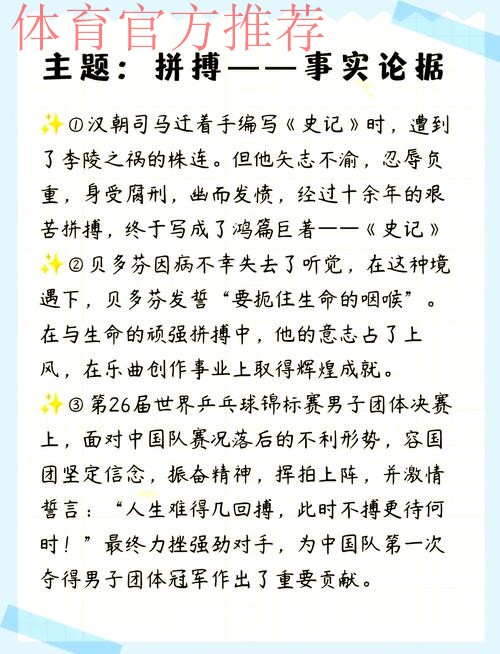 体育官方推荐
主题：拼搏——事实论据
✨①汉朝司马迁着手编写《史记》时，遭到
了李陵之祸的株连。但他矢志不渝，忍辱负
重，身受腐刑，幽而发愤，经过十余年的艰
苦拼搏，终于写成了鸿篇巨著——《史记》
✨②贝多芬因病不幸失去了听觉，在这种境
遇下，贝多芬发誓“要扼住生命的咽喉”。
在与生命的顽强拼搏中，他的意志占了上
风，在乐曲创作事业上取得辉煌成就。
✨③第26届世界乒乓球锦标赛男子团体决赛
上，面对中国队赛况落后的不利形势，容国
团坚定信念，振奋精神，挥拍上阵，并激情
誓言：“人生难得几回搏，此时不搏更待何
时！”最终力挫强劲对手，为中国队第一次
夺得男子团体冠军作出了重要贡献。